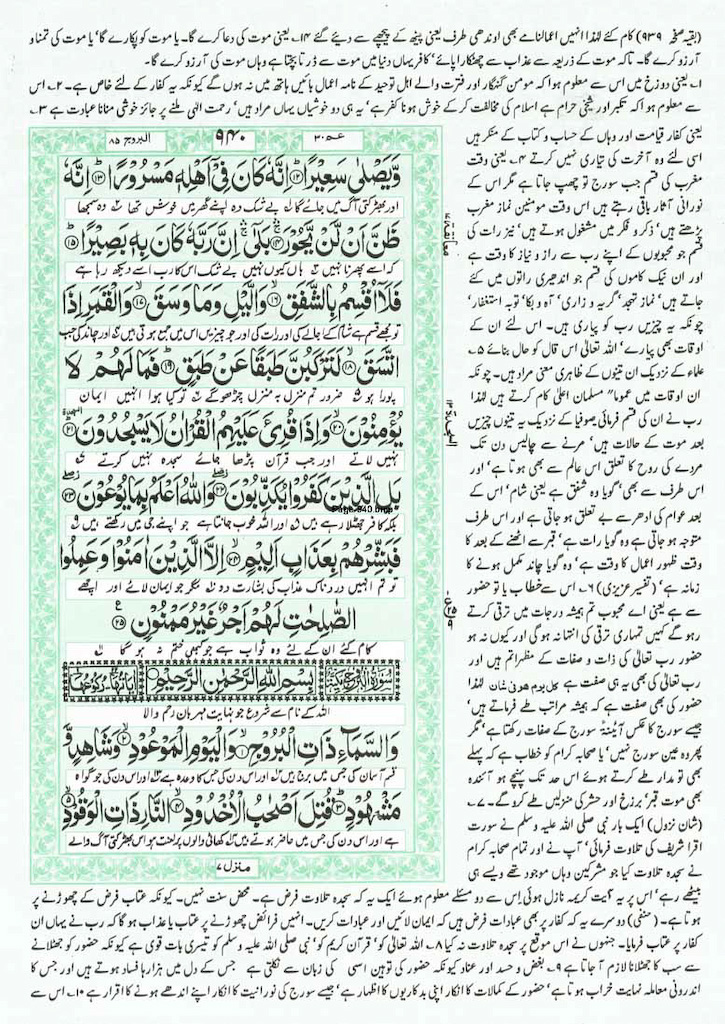 (بقیہ صفحہ ۹۳۹) کام کئے لہٰذا انہیں اعمالنامے بھی اوندھی طرف یعنی پیٹھ کے پیچھے سے دیئے گئے ۱۴۔ یعنی موت کی دعا کرے گا۔ یا موت کو پکارے گا' یا موت کی تمنا و
آرزو کرے گا۔ تاکہ موت کے ذریعہ سے عذاب سے چھٹکارا پائے' کافر یہاں دنیا میں موت سے ڈرتا بچتا ہے وہاں موت کی آرزو کرے گا۔
۱۔ یعنی دوزخ میں اس سے معلوم ہوا کہ مومن گنہگار اور فترت والے اہل توحید کے نامہ اعمال بائیں ہاتھ میں نہ ہوں گے کیونکہ یہ کفار کے لئے خاص ہے۔ ۲۔ اس
سے معلوم ہوا کہ تکبر اور شیخی حرام ہے اسلام کی مخالفت کر کے خوش ہونا کفر ہے' یہ ہی دو خوشیاں یہاں مراد ہیں' رحمت الٰہی ملنے پر جائز خوشی منانا عبادت ہے ۳۔
یعنی کفار قیامت اور وہاں کے حساب و کتاب کے منکر ہیں
اسی لئے وہ آخرت کی تیاری نہیں کرتے ۴۔ یعنی وقت
مغرب کی قسم جب سورج تو چھپ جاتا ہے مگر اس کے
نورانی آثار باقی رہتے ہیں اس وقت مومنین نماز مغرب
پڑھتے ہیں' ذکر و فکر میں مشغول ہوتے ہیں' نیز رات کی
قسم جو محبوبوں کے اپنے رب سے راز و نیاز کا وقت ہے
اور ان نیک کاموں کی قسم جو اندھیری راتوں میں کئے
جاتے ہیں' نماز تہجد' گریہ و زاری' آہ و بکا' توبہ استغفار'
چونکہ یہ چیزیں رب کو پیاری ہیں۔ اس لئے ان کے
اوقات بھی پیارے' اللہ تعالٰی اس قال کو حال بنائے ۵۔
علماء کے نزدیک ان تینوں کے ظاہری معنی مراد ہیں۔ چونکہ
ان اوقات میں عموماً" مسلمان اعلیٰ کام کرتے ہیں لہٰذا
رب نے ان کی قسم فرمائی صوفیا کے نزدیک یہ تینوں چیزیں
بعد موت کے حالات ہیں' مرنے سے چالیس دن تک
مردے کی روح کا تعلق اس عالم سے بھی ہوتا ہے' اور
اس طرف سے بھی' گویا وہ شفق ہے یعنی شام' اس کے
بعد عوام کی ادھر سے بے تعلق ہو جاتی ہے اور اس طرف
متوجہ ہو جاتی ہے وہ گویا رات ہے' قبر سے اٹھنے کے بعد کا
وقت ظہور اعمال کا وقت ہے' وہ گویا چاند مکمل ہونے کا
زمانہ ہے' (تفسیر عزیزی) ۶۔ اس سے خطاب یا تو حضور
سے ہے یعنی اے محبوب تم ہمیشہ درجات میں ترقی کرتے
رہو گے کہیں تمہاری ترقی کی انتہا نہ ہو گی اور کیوں نہ ہو
حضور رب تعالٰی کی ذات و صفات کے مظہر اتم ہیں اور
رب تعالٰی کی بھی یہ ہی صفت ہے کل یوم ھو فی شان لہٰذا
حضور کی بھی صفت ہے کہ ہمیشہ مراتب طے فرماتے ہیں'
جیسے سورج کا عکس آئینہ سورج کے صفات رکھتا ہے' مگر
پھر وہ عین سورج نہیں' یا صحابہ کرام کو خطاب ہے کہ پہلے
بھی تو مدارج طے کرتے ہوئے اس حد تک پہنچے ہو آئندہ
بھی موت قبر' برزخ اور حشر کی منزلیں طے کرو گے۔ ۷۔
(شان نزول) ایک بار نبی صلی اللہ علیہ وسلم نے سورت
اقرا شریف کی تلاوت فرمائی' آپ نے اور تمام صحابہ کرام
نے سجدہ تلاوت کیا جو مشرکین وہاں موجود تھے ویسے ہی
عم ۳۰
۹۴۰
البروج ۸۵
وَّيَصْلٰى سَعِيْرًا ﴿۱۲﴾ اِنَّهٗ كَانَ فِيْۤ اَهْلِهٖ مَسْرُوْرًا ﴿۱۳﴾ اِنَّهٗ
اور بھڑکتی آگ میں جائے گا ۱ بے شک وہ اپنے گھر میں خوش تھا ۲ وہ سمجھا
ظَنَّ اَنْ لَّنْ يَّحُوْرَ ﴿۱۴﴾ بَلٰۤى اِنَّ رَبَّهٗ كَانَ بِهٖ بَصِيْرًا ﴿۱۵﴾
کہ اسے پھرنا نہیں ۳ ہاں کیوں نہیں بے شک اس کا رب اسے دیکھ رہا ہے
فَلَاۤ اُقْسِمُ بِالشَّفَقِ ﴿۱۶﴾ وَالَّيْلِ وَمَا وَسَقَ ﴿۱۷﴾ وَالْقَمَرِ اِذَا
تو مجھے قسم ہے شام کے اجالے کی ۴ اور رات کی اور جو چیزیں اس میں جمع ہوتی ہیں اور چاند کی جب
اتَّسَقَ ﴿۱۸﴾ لَتَرْكَبُنَّ طَبَقًا عَنْ طَبَقٍ ﴿۱۹﴾ فَمَا لَهُمْ لَا
پورا ہو ۵ ضرور تم منزل بہ منزل چڑھو گے ۶ تو کیا ہوا انہیں ایمان
يُؤْمِنُوْنَ ﴿۲۰﴾ وَاِذَا قُرِئَ عَلَيْهِمُ الْقُرْاٰنُ لَا يَسْجُدُوْنَ ﴿۲۱﴾
نہیں لاتے اور جب قرآن پڑھا جائے سجدہ نہیں کرتے ۷
بَلِ الَّذِيْنَ كَفَرُوْا يُكَذِّبُوْنَ ﴿۲۲﴾ وَاللّٰهُ اَعْلَمُ بِمَا يُوْعُوْنَ ﴿۲۳﴾
Page-940.bmp
بلکہ کافر جھٹلا رہے ہیں ۸ اور اللہ خوب جانتا ہے جو اپنے جی میں رکھتے ہیں ۹
فَبَشِّرْهُمْ بِعَذَابٍ اَلِيْمٍ ﴿۲۴﴾ اِلَّا الَّذِيْنَ اٰمَنُوْا وَعَمِلُوا
تو تم انہیں دردناک عذاب کی بشارت دو مگر جو ایمان لائے اور اچھے
الصّٰلِحٰتِ لَهُمْ اَجْرٌ غَيْرُ مَمْنُوْنٍ ﴿۲۵﴾
کام کئے ان کے لئے وہ ثواب ہے جو کبھی ختم نہ ہو گا
بِسْمِ اللّٰهِ الرَّحْمٰنِ الرَّحِيْمِ
اللہ کے نام سے شروع جو نہایت مہربان رحم والا
وَالسَّمَآءِ ذَاتِ الْبُرُوْجِ ﴿۱﴾ وَالْيَوْمِ الْمَوْعُوْدِ ﴿۲﴾ وَشَاهِدٍ وَّ
قسم آسمان کی جس میں برج ہیں اور اس دن کی جس کا وعدہ ہے اور اس دن کی جو گواہ
مَشْهُوْدٍ ﴿۳﴾ قُتِلَ اَصْحٰبُ الْاُخْدُوْدِ ﴿۴﴾ النَّارِ ذَاتِ الْوَقُوْدِ ﴿۵﴾
ہے اور اس دن کی جس میں حاضر ہوتے ہیں کھائی والوں پر لعنت ہو اس بھڑکتی آگ والے
منزل ۷
بیٹھے رہے' اس پر یہ آیت کریمہ نازل ہوئی اس سے دو مسئلے معلوم ہوئے ایک یہ کہ سجدہ تلاوت فرض ہے۔ محض سنت نہیں۔ کیونکہ عتاب فرض کے چھوڑنے پر
ہوتا ہے۔ (حنفی) دوسرے یہ کہ کفار پر بھی عبادات فرض ہیں کہ ایمان لائیں اور عبادات کریں۔ انہیں فرائض چھوڑنے پر عتاب یا عذاب ہو گا کہ رب نے یہاں ان
کفار پر عتاب فرمایا۔ جنہوں نے اس موقع پر سجدہ تلاوت نہ کیا ۸۔ اللہ تعالٰی کو' قرآن کریم کو' نبی صلی اللہ علیہ وسلم کو تیسری بات قوی ہے کیونکہ حضور کو جھٹلانے
سے سب کا جھٹلانا لازم آ جاتا ہے ۹۔ بغض و حسد اور عناد کیونکہ حضور کی توہین اسی کی زبان سے نکلتی ہے جس کے دل میں ہزارہا فساد ہوتے ہیں اور جس کا
اندرونی معاملہ نہایت خراب ہوتا ہے' حضور کے کمالات کا انکار اپنی بدکاریوں کا اظہار ہے' جیسے سورج کی نورانیت کا انکار اپنے اندھے ہونے کا اقرار ہے ۱۰۔ اس سے